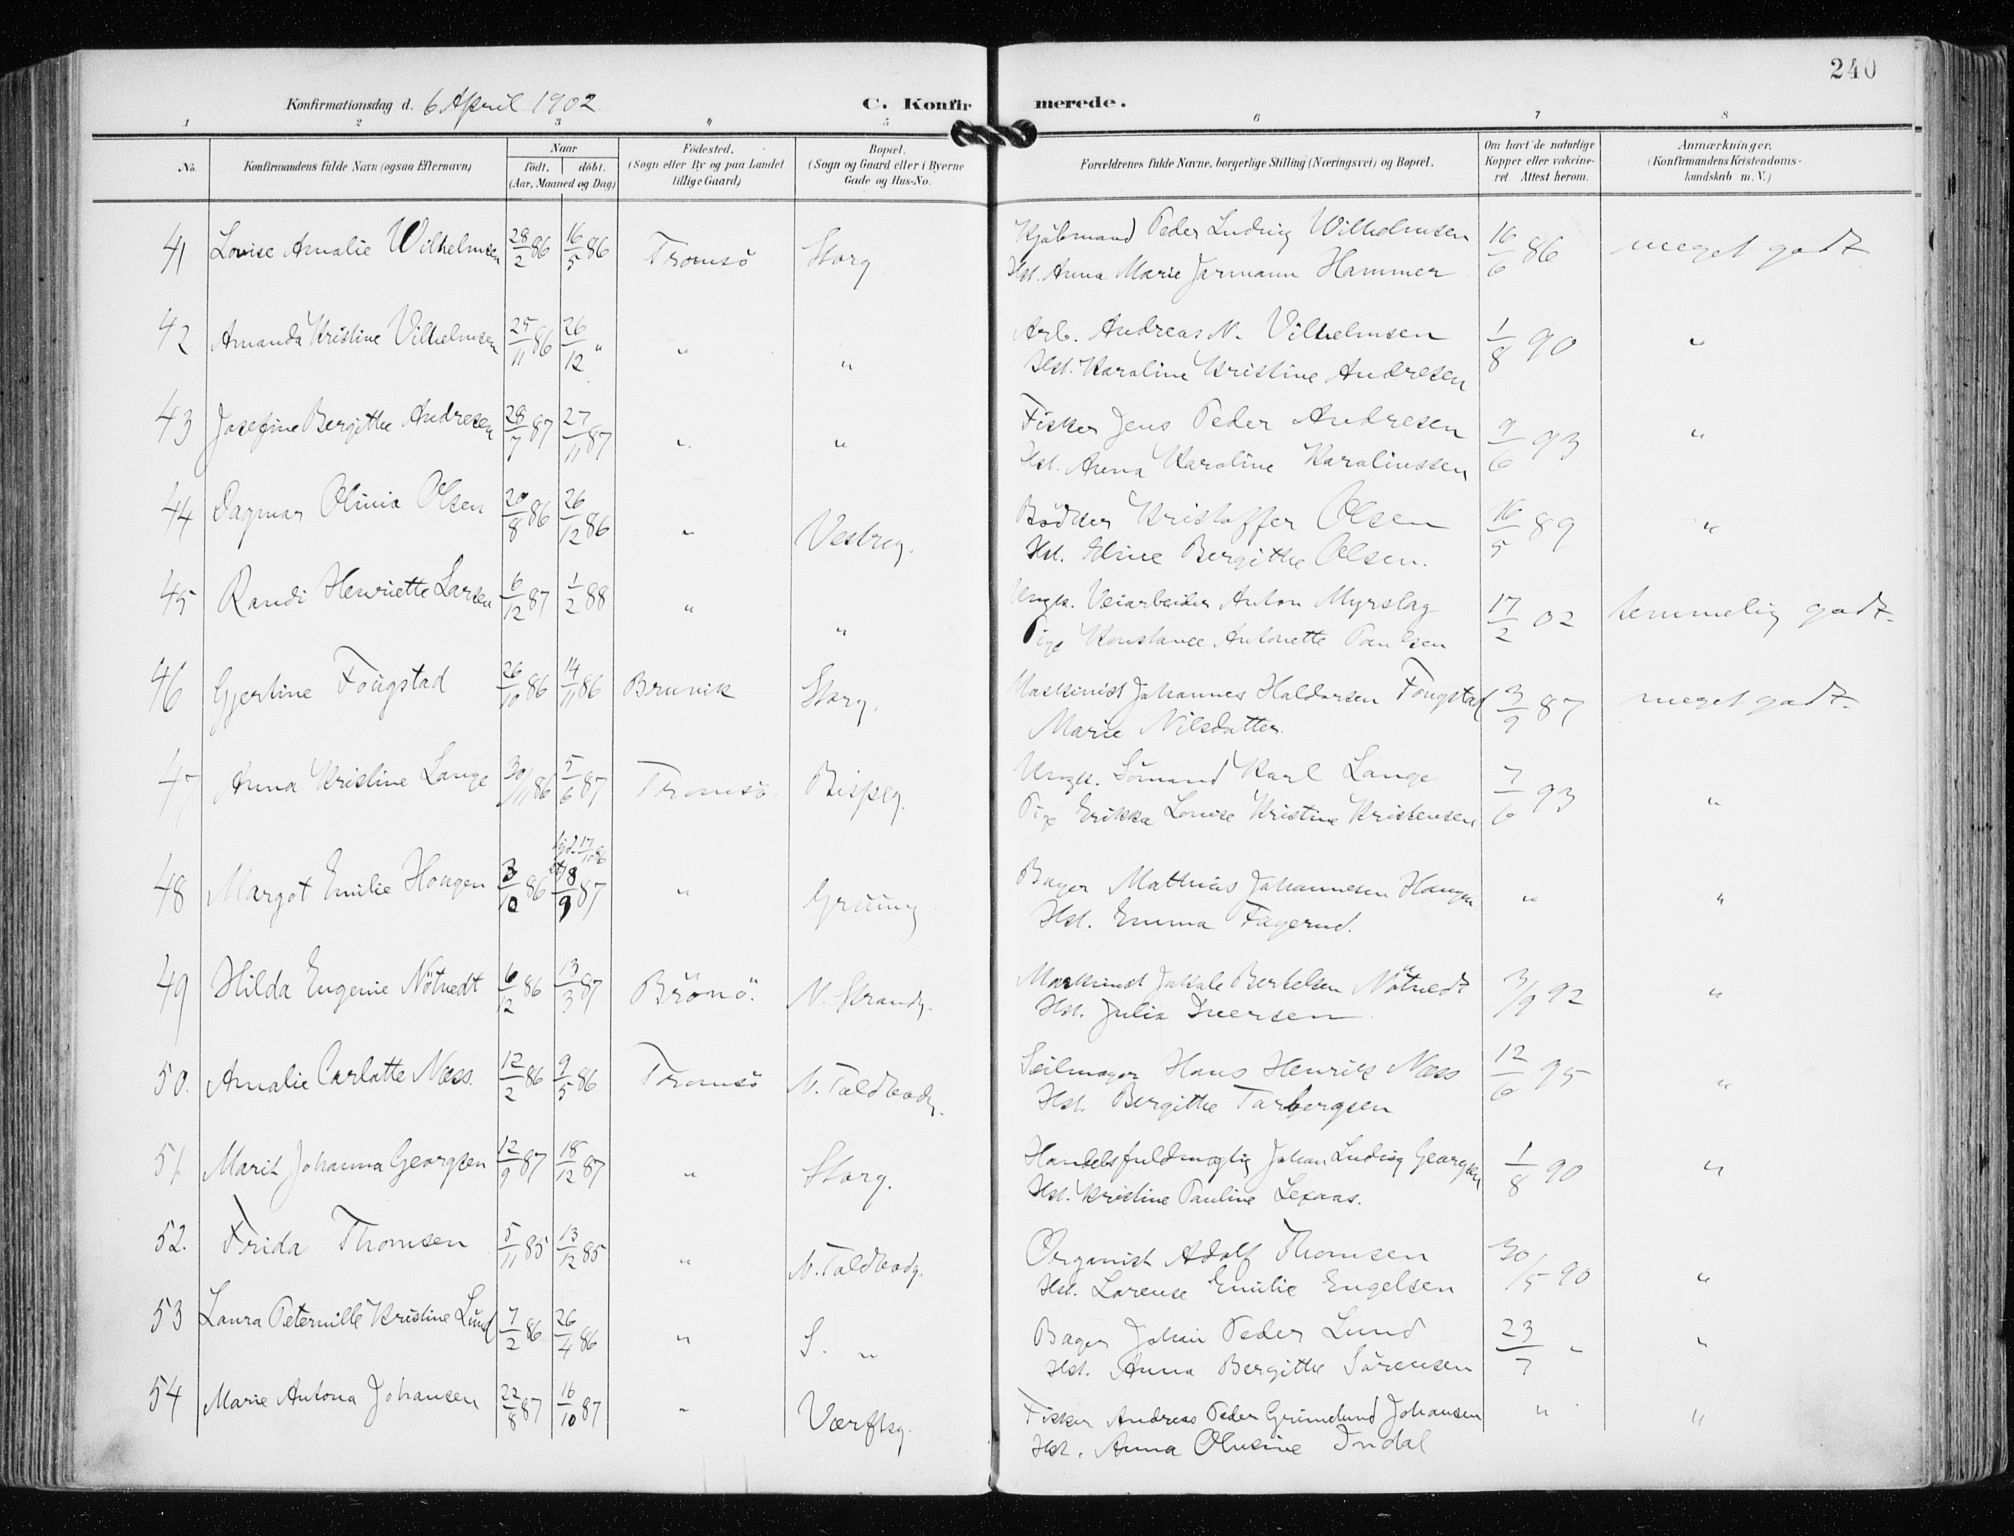 240
Konfirmationsdag d. 6 April 1902
C. Konfirmerede.
1 2 3 4 5 6 7 8
No. Konfirmandens fulde Navn (ogsaa Efternavn) Naar födt. döbt. (Aar, Maaned og Dag) Födested. (Sogn eller By og paa Landet tillige Gaard) Bopæl. (Sogn og Gaard eller i Byerne Gade og Hus-No. Forældrenes fulde Navne, borgerlige Stilling (Næringsvei) og Bopæl. Om havt de naturlige Kopper eller vakcineret. Attest herom. Anmærkninger. (Konfirmandens Kristendomskundskab m. V.)
41 Lovise Amalie Wilhelmsen 28/2 86 16/5 86 Tromsö Storg. Kjöbmand Peder Ludvig Wilhelmsen 16/6 86 meget godt
Hst. Anna Marie Jarmann Hammer
42 Amanda Kristine Vilhelmsen 25/11 86 26/12 " " " Arb. Andreas N. Vilhelmsen 1/8 90 "
Hst. Karoline Kristine Andresen
43 Josefine Bergitte Andresen 28/7 87 27/11 87 " " Fisker Jens Peder Andresen 9/6 93 "
Hst. Anna Karoline Karolinssen
44 Dagmar Olivia Olsen 20/8 86 26/12 86 " Vestreg. Bödker Kristoffer Olsen 16/5 89 "
Hst. Eline Bergitte Olsen.
45 Randi Henriette Larsen 6/12 87 1/2 88 " " Ungk. Veiarbeider Anton Myrslag 17/2 02 temmelig godt
Pige Konstance Antonette Paulsen
46 Gjertine Fougstad 26/10 86 14/11 86 Bruvik Storg. Maskinist Johannes Haldorsen Fougstad 3/9 87 meget godt
Marie Nilsdatter
47 Anna Kristine Lange 30/11 86 5/6 87 Tromsö. Bispeg. Ungk. Sömand Karl Lange 7/6 93 "
Pige Erikka Lovise Kristine Kristensen
48 Margot Emilie Hougen 3/10 86 hjd. 17/10 86 18/9 87 " Grüung Bager Matthias Johannesen Haugen " "
Hst. Emma Fagerud.
49 Hilda Eugenie Nötvedt 6/12 86 13/3 87 Brönö. N. Strandg. Maskinist Jakob Bertelsen Nötvedt 3/9 92 "
Hst. Julia Iversen
50. Amalie Carlotte Næss. 12/2 86 9/5 86 Tromsö N. Toldbodg. Seilmager Hans Henrik Næss 12/6 95 "
Hst. Bergitte Torbergsen
51 Marit Johanna Georgsen 12/9 87 18/12 87 " Storg. Handelsfuldmægtig Johan Ludvig Georgsen 1/8 90 "
Hst. Kristine Pauline Lexaas.
52. Frida Thomsen 5/11 85 13/12 85 " N. Toldbodg. Organist Adolf Thomsen 30/5 90 "
Hst. Lorense Emilie Engelsen
53 Laura Peternille Kristine Lund 7/2 86 26/4 86 " S. " Bager Johan Peder Lund 23/7 " "
Hst. Anna Bergitte Sörensen
54 Marie Antona Johansen 22/8 87 16/10 87 " Værftsg. Fisker Andreas Peder Grünelund Johansen " "
Hst. Anna Olusine Indal